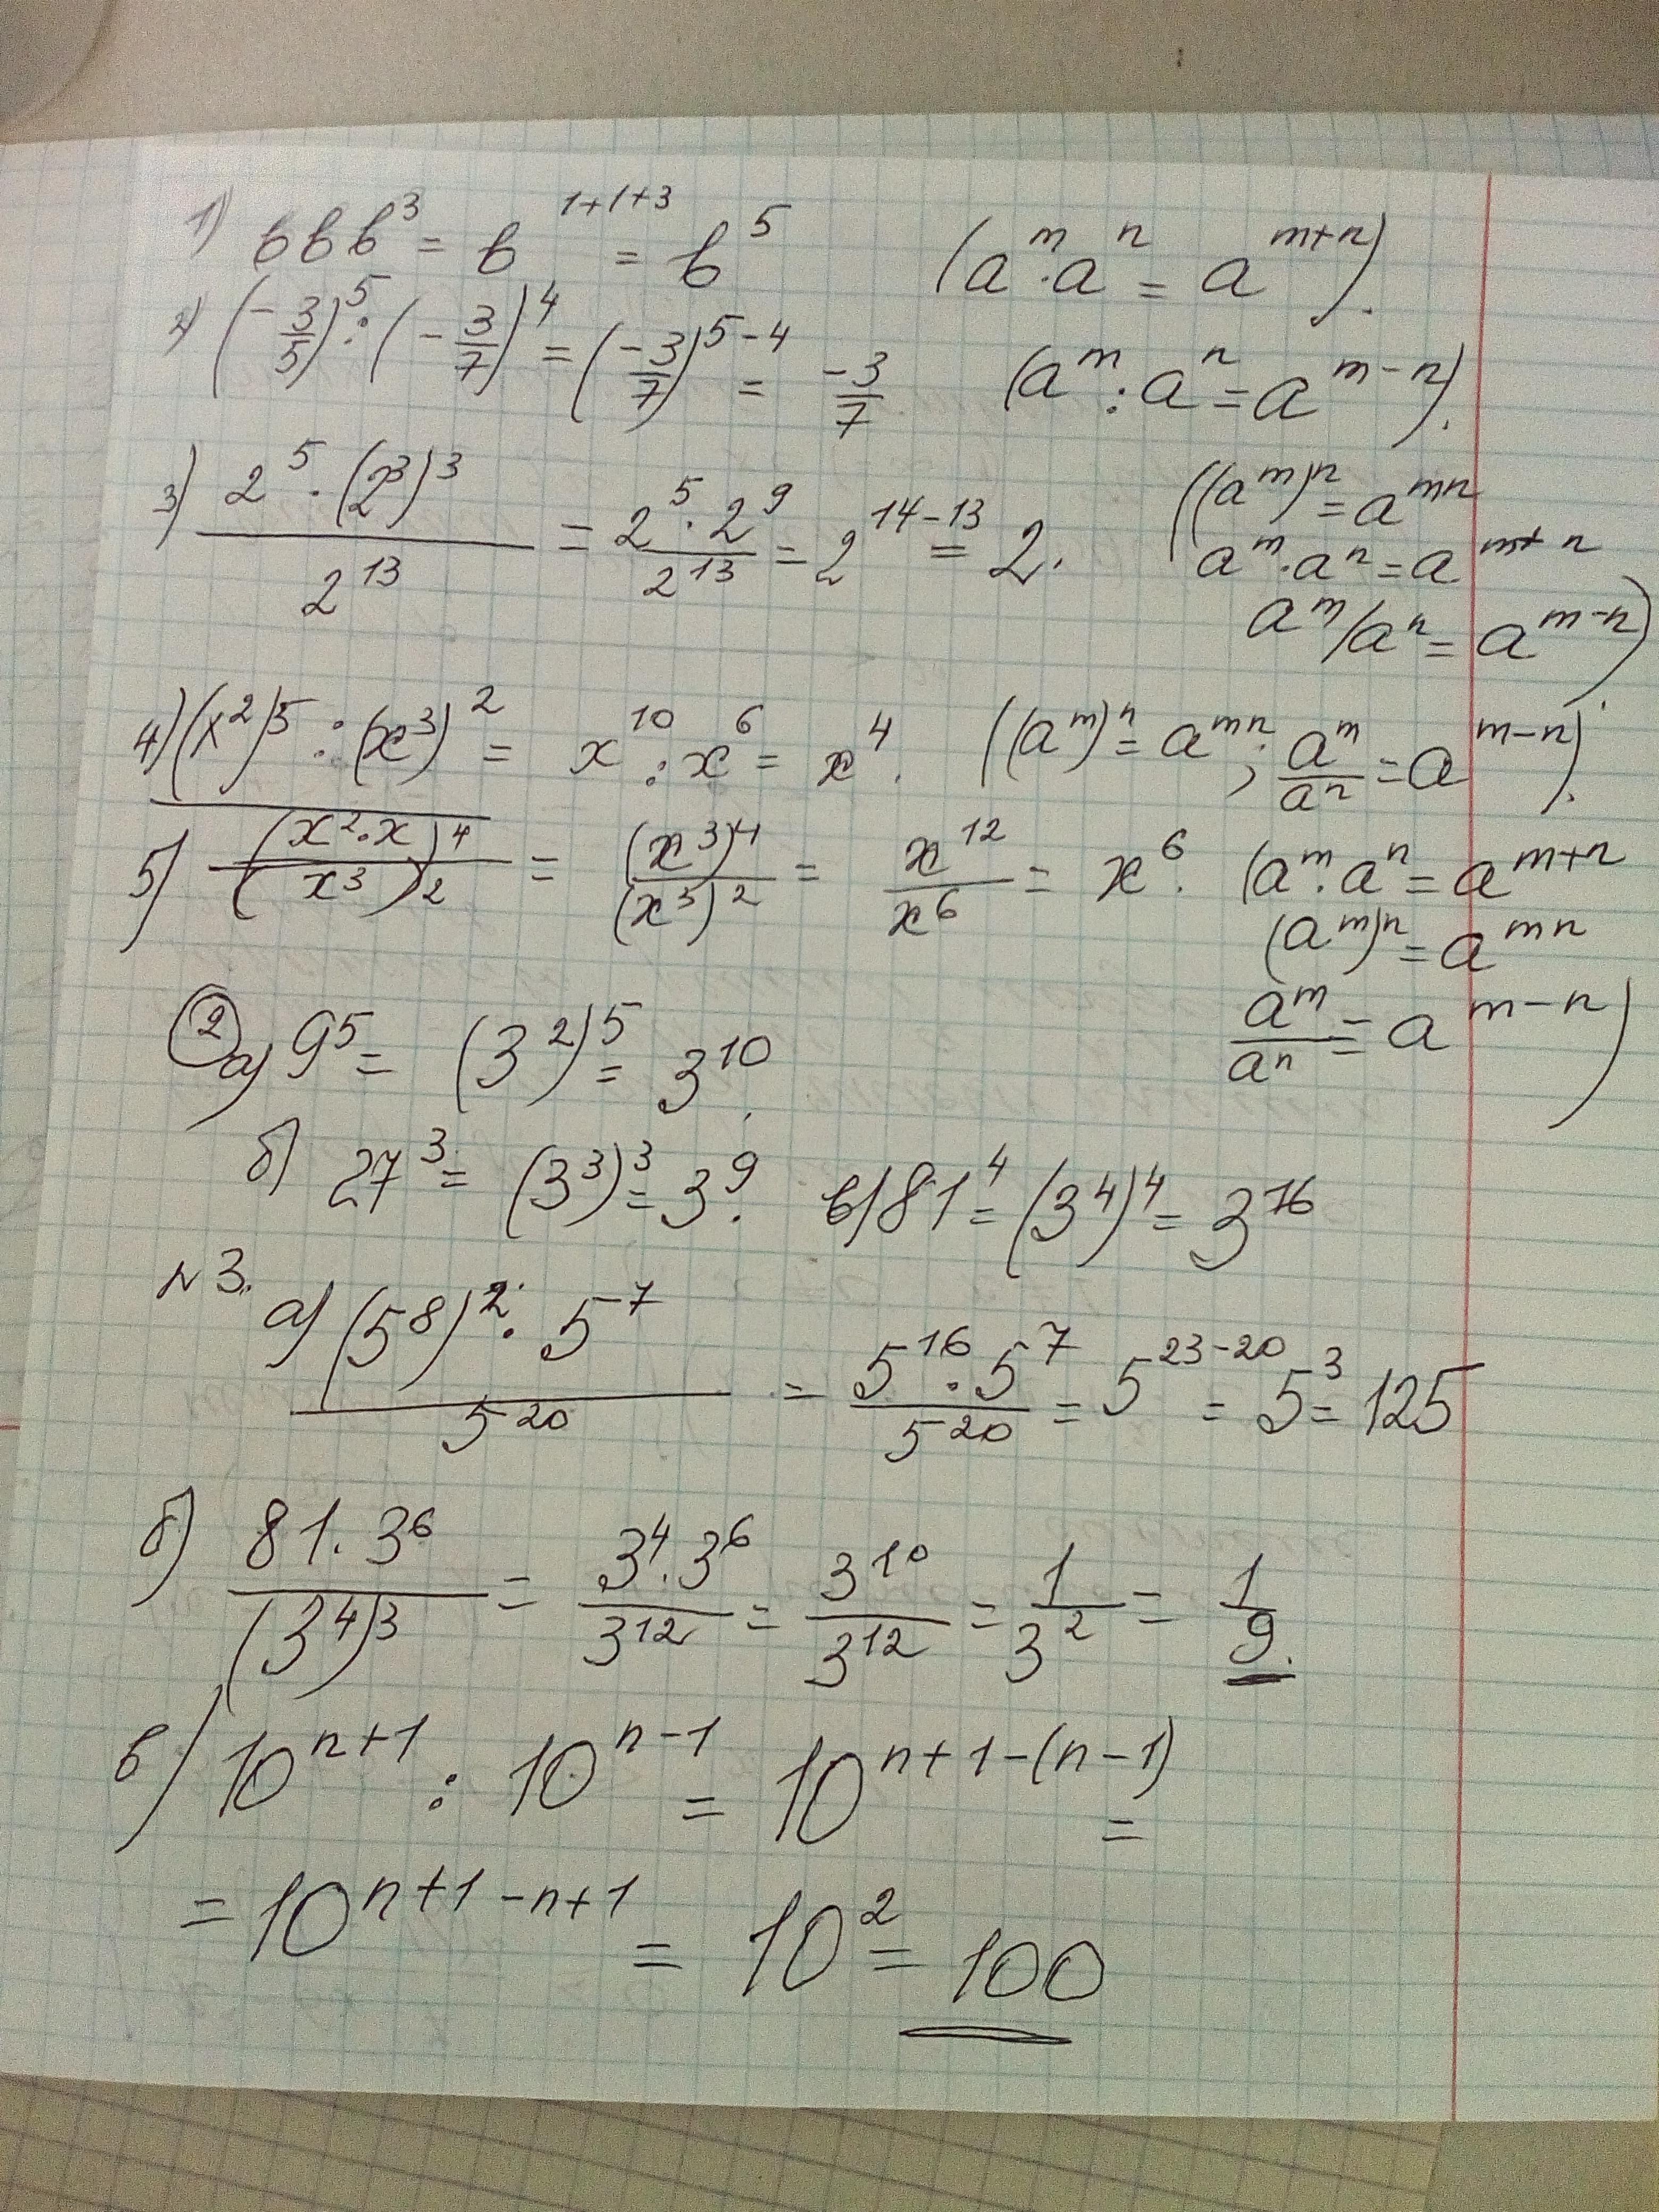 1) b b b³ = b¹⁺¹⁺³ = b⁵ (aᵐ · aⁿ = aᵐ⁺ⁿ).
2) (-3/5)⁵ : (-3/7)⁴ = (-3/7)⁵⁻⁴ = -3/7 (aᵐ : aⁿ = aᵐ⁻ⁿ).
3) (2⁵ · (2³)³)/2¹³ = (2⁵ · 2⁹)/2¹³ = 2¹⁴⁻¹³ = 2. ((aᵐ)ⁿ = aᵐⁿ
aᵐ · aⁿ = aᵐ⁺ⁿ
aᵐ/aⁿ = aᵐ⁻ⁿ).
4) (x²)⁵ : (x³)² = x¹⁰ : x⁶ = x⁴. ((aᵐ)ⁿ = aᵐⁿ; aᵐ/aⁿ = aᵐ⁻ⁿ).
5) (x² · x)⁴/(x³)² = (x³)⁴/(x³)² = x¹²/x⁶ = x⁶. (aᵐ · aⁿ = aᵐ⁺ⁿ
(aᵐ)ⁿ = aᵐⁿ
aᵐ/aⁿ = aᵐ⁻ⁿ)
② а) 9⁵ = (3²)⁵ = 3¹⁰.
б) 27³ = (3³)³ = 3⁹. в) 81⁴ = (3⁴)⁴ = 3¹⁶
N 3.
а) ((5⁸)² · 5⁷)/5²⁰ = (5¹⁶ · 5⁷)/5²⁰ = 5²³⁻²⁰ = 5³ = 125
б) (81 · 3⁶)/(3⁴)³ = (3⁴ · 3⁶)/3¹² = 3¹⁰/3¹² = 1/3² = 1/9.
в) 10ⁿ⁺¹ : 10ⁿ⁻¹ = 10ⁿ⁺¹⁻⁽ⁿ⁻¹⁾ =
= 10ⁿ⁺¹⁻ⁿ⁺¹ = 10² = 100